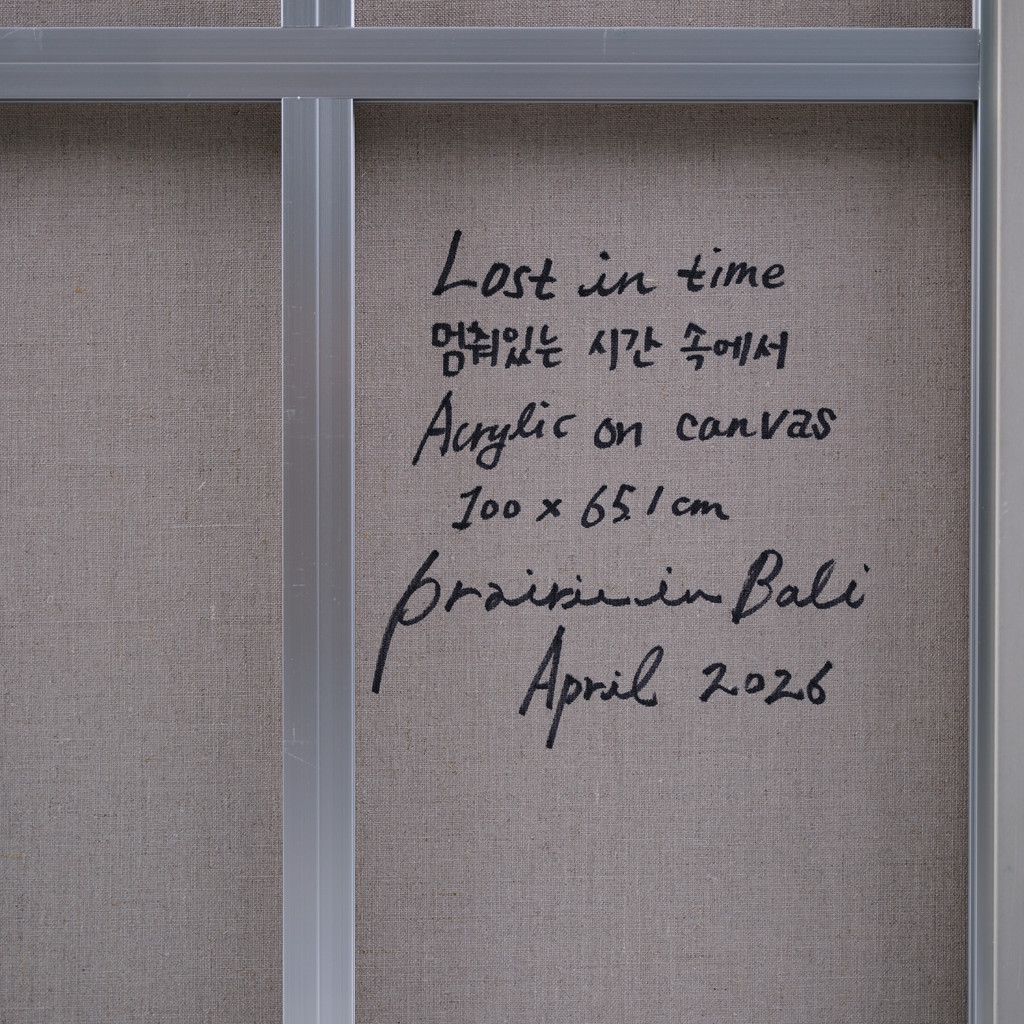 Lost in time
멈춰있는 시간 속에서
Acrylic on canvas
100 x 65.1 cm
prairie in Bali
April 2026